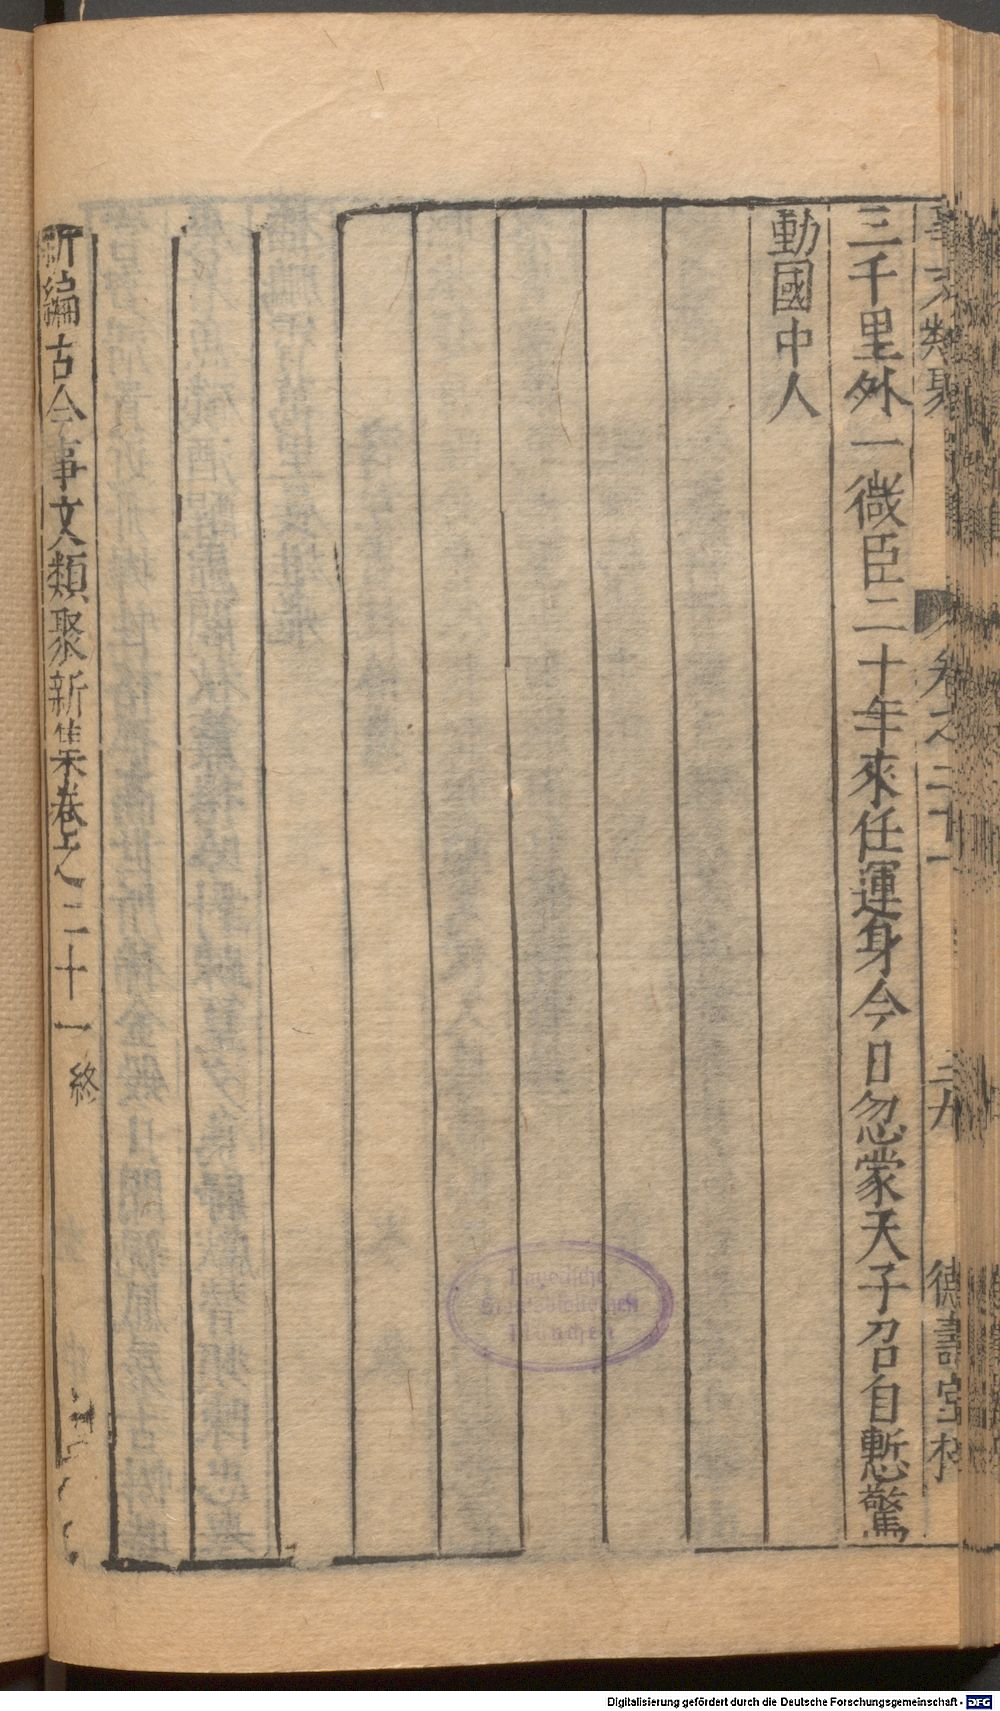 事文類聚 卷之二十一 三九 德壽宮
三千里外一微臣二十年來任運身今日忽蒙天子召自慙驚
動國中人
新編古今事文類聚新集卷之二十一 終
Bayerische
Staatsbibliothek
München
Digitalisierung gefördert durch die Deutsche Forschungsgemeinschaft - DFG